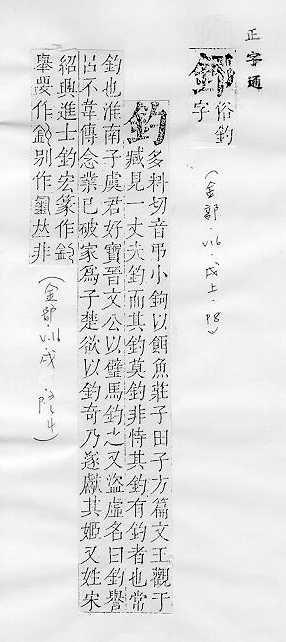 正字通
俗釣
字
(金部.V.16.戌上.P8)
釣
多料切音弔小鉤以餌魚莊子田子方篇文王觀于
臧見一丈夫釣而其釣莫釣非恃其釣有釣者也常
釣也淮南子虞君好寶晉文公以璧馬釣之又盜虛名曰釣譽
呂不韋傳念業已破家爲子楚欲以釣奇乃遂獻其姬又姓宋
紹興進士釣宏篆作
舉要作別作𠀤非
(金部.V.16.戌)